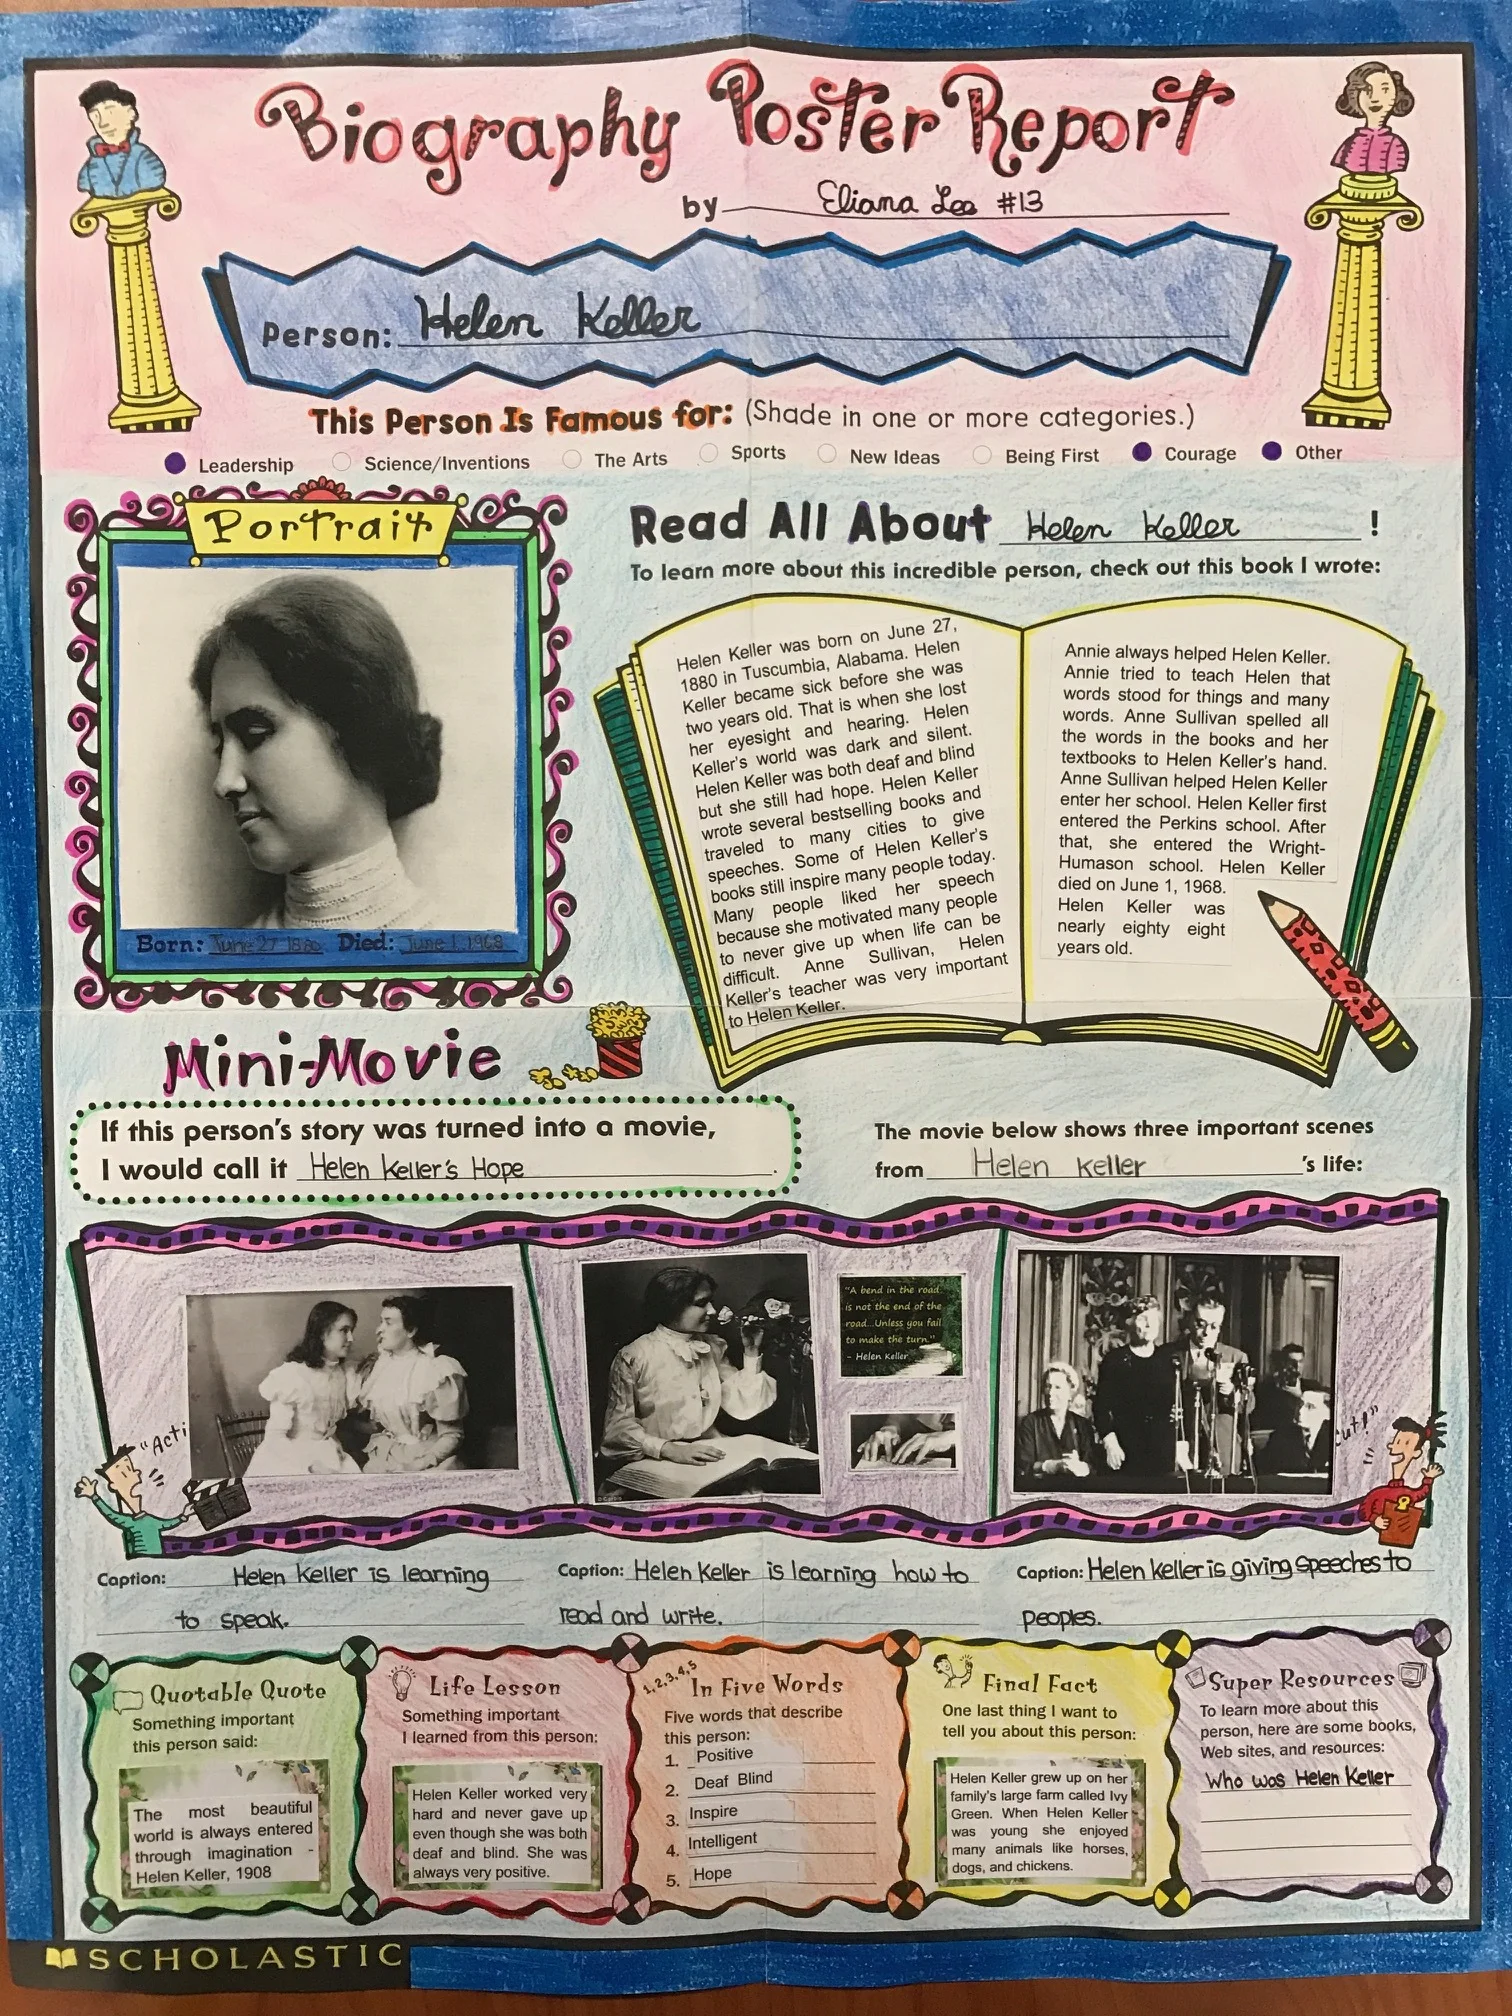 Biography Poster Report
by Eliana Lee #13
Person: Helen Keller
This Person Is Famous for: (Shade in one or more categories.)
Leadership Science/Inventions The Arts Sports New Ideas Being First Courage Other
Portrait
Born: June 27 1880 Died: June 1, 1968
Read All About Helen Keller !
To learn more about this incredible person, check out this book I wrote:
Helen Keller was born on June 27,
1880 in Tuscumbia, Alabama. Helen
Keller became sick before she was
two years old. That is when she lost
her eyesight and hearing. Helen
Keller's world was dark and silent.
Helen Keller was both deaf and blind
but she still had hope. Helen Keller
wrote several bestselling books and
traveled to many cities to give
speeches. Some of Helen Keller's
books still inspire many people today.
Many people liked her speech
because she motivated many people
to never give up when life can be
difficult. Anne Sullivan, Helen
Keller's teacher was very important
to Helen Keller.
Annie always helped Helen Keller.
Annie tried to teach Helen that
words stood for things and many
words. Anne Sullivan spelled all
the words in the books and her
textbooks to Helen Keller's hand.
Anne Sullivan helped Helen Keller
enter her school. Helen Keller first
entered the Perkins school. After
that, she entered the Wright-
Humason school. Helen Keller
died on June 1, 1968.
Helen Keller was
nearly eighty eight
years old.
Mini-Movie
If this person's story was turned into a movie,
I would call it Helen Keller's Hope.
The movie below shows three important scenes
from Helen Keller's life:
"Acti
"A bend in the road
is not the end of the
road...Unless you fail
to make the turn."
- Helen Keller
Cut!"
Caption: Helen Keller is learning
to speak.
Caption: Helen Keller is learning how to
read and write.
Caption: Helen Keller is giving speeches to
peoples.
Quotable Quote
Something important
this person said:
The most beautiful
world is always entered
through imagination -
Helen Keller, 1908
Life Lesson
Something important
I learned from this person:
Helen Keller worked very
hard and never gave up
even though she was both
deaf and blind. She was
always very positive.
1,2,3,4,5
In Five Words
Five words that describe
this person:
1. Positive
2. Deaf Blind
3. Inspire
4. Intelligent
5. Hope
Final Fact
One last thing I want to
tell you about this person:
Helen Keller grew up on her
family's large farm called Ivy
Green. When Helen Keller
was young she enjoyed
many animals like horses,
dogs, and chickens.
Super Resources
To learn more about this
person, here are some books,
Web sites, and resources:
Who was Helen Keller
SCHOLASTIC